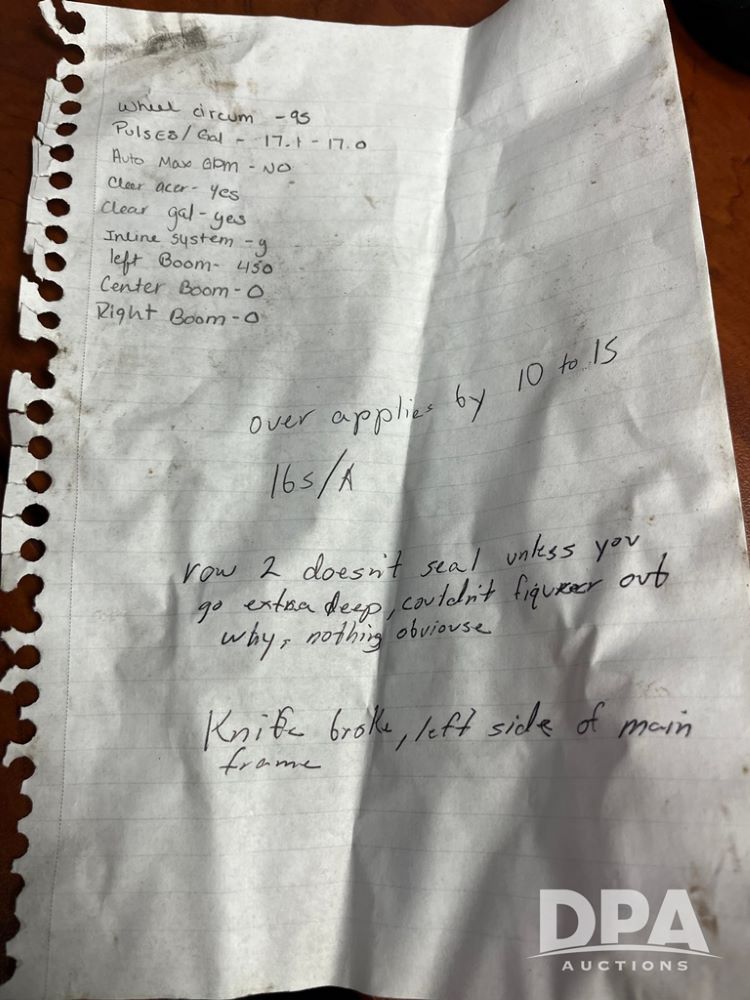 Wheel circum - 95
Pulses/Gal - 17.1 - 17.0
Auto Max GPM - NO
Clear acer - yes
Clear gal - yes
Inline system - y
left Boom - 450
Center Boom - 0
Right Boom - 0
over applies by 10 to 15
lbs/A
row 2 doesn't seal unless you
go extra deep, couldn't figure out
why, nothing obviouse
Knife broke, left side of main
frame
DPA
AUCTIONS